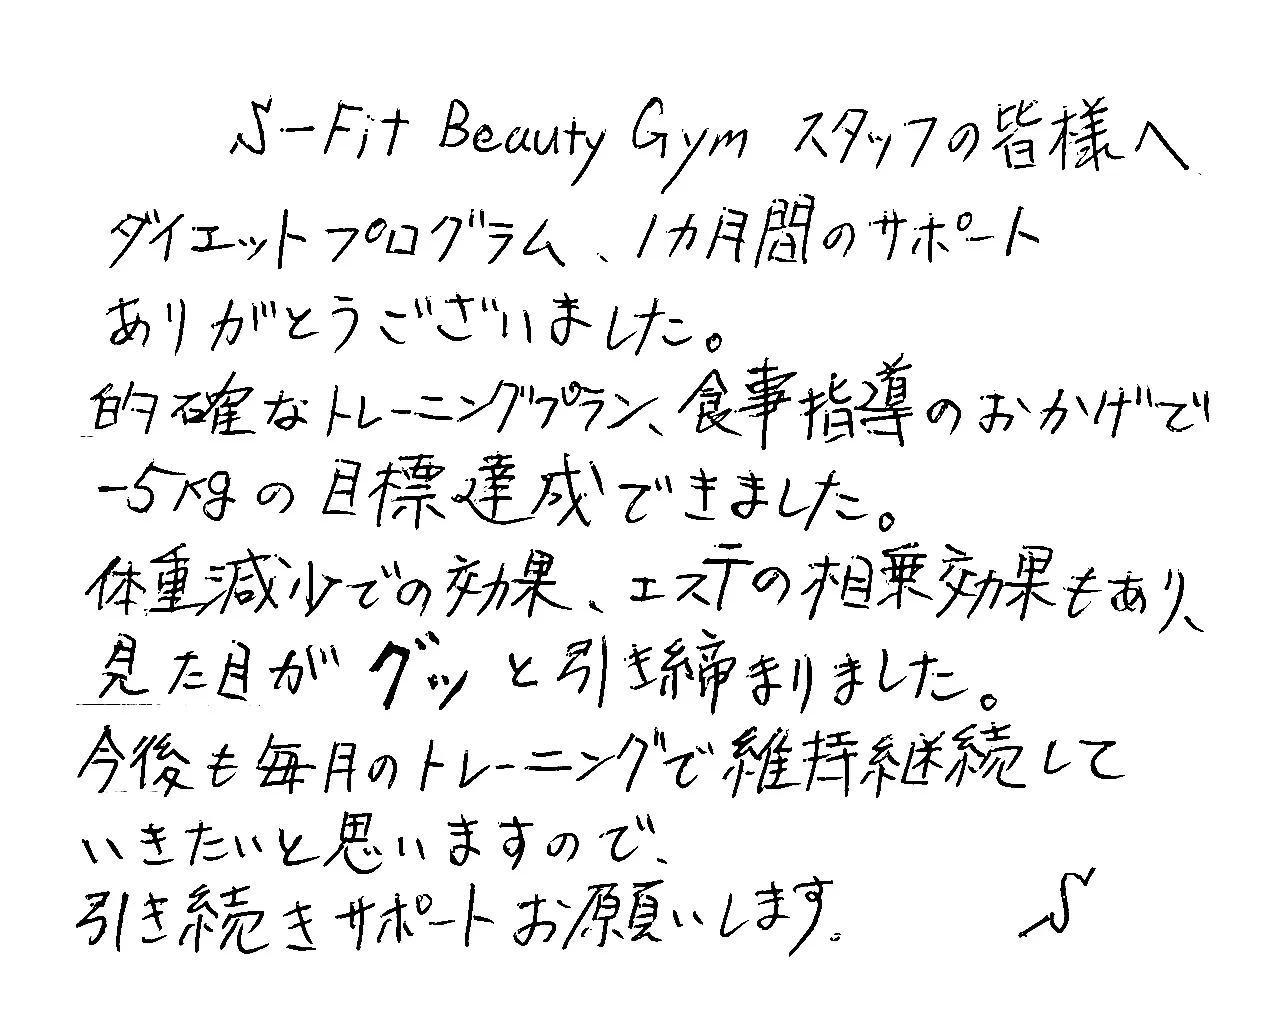 S-Fit Beauty Gym スタッフの皆様へ
ダイエットプログラム、1カ月間のサポート
ありがとうございました。
的確なトレーニングプラン、食事指導のおかげで
-5kgの目標達成できました。
体重減少での効果、エステの相乗効果もあり、
見た目がグッと引き締まりました。
今後も毎月のトレーニングで維持継続して
いきたいと思いますので、
引き続きサポートお願いします。 S